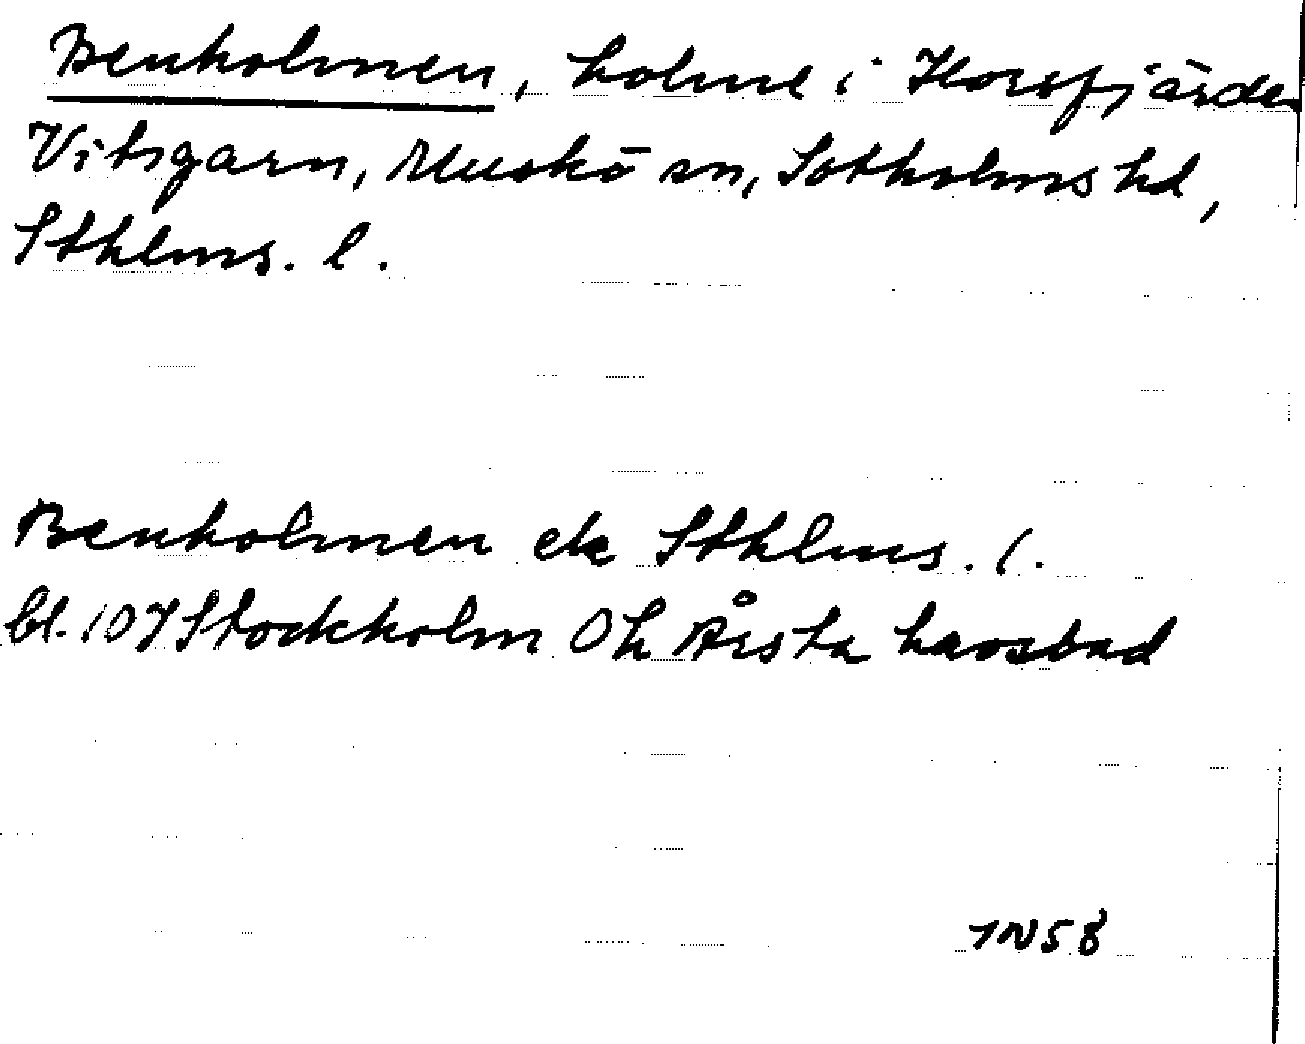 Benholmen, holme i Horsfjärden
Vitsgarn, Muskö sn, Sotholms hd,
Sthlms. l.
Benholmen ek Sthlms. l.
bl. 107 Stockholm Oh Årsta havsbad
1N58